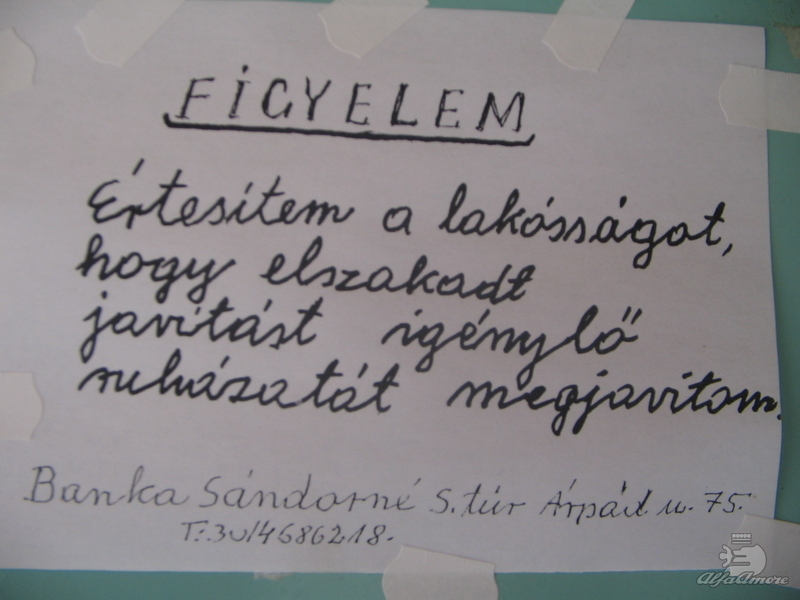 FİGYELEM
Értesítem a lakósságot,
hogy elszakadt
javítást igénylő
ruházatát megjavítom.
Banka Sándorné S.túr Árpád u. 75.
T:30/4686218.
AlfaAmore